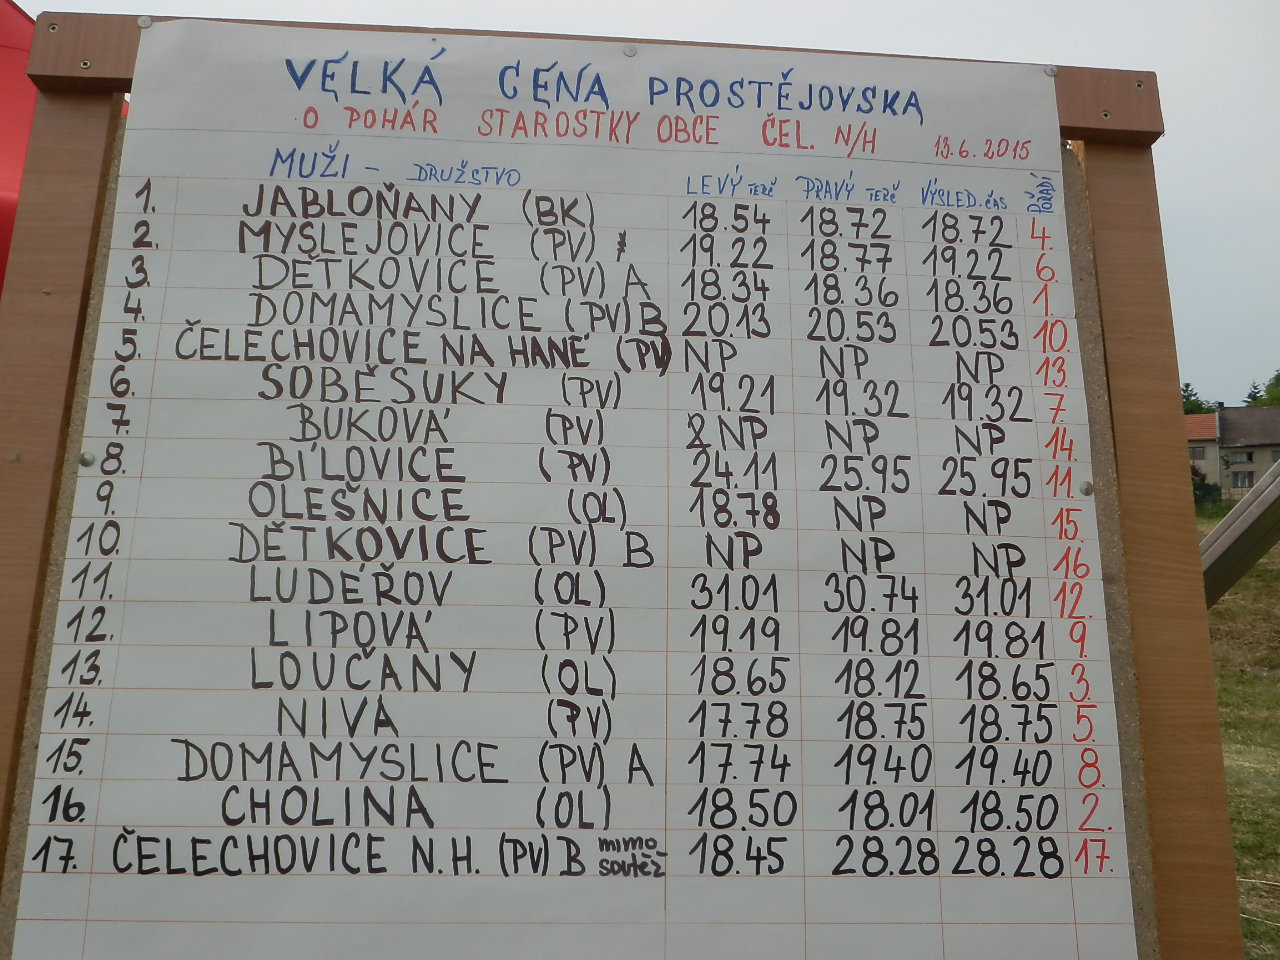 VELKÁ CENA PROSTĚJOVSKA
O POHÁR STAROSTKY OBCE ČEL. N/H 13.6.2015
MUŽI - DRUŽSTVO LEVÝ TERČ PRAVÝ TERČ VÝSLED. ČAS POŘADÍ
1. JABLOŇANY (BK) 18.54 18.72 18.72 4.
2. MYSLEJOVICE (PV) 19.22 18.77 19.22 6.
3. DĚTKOVICE (PV) A 18.34 18.36 18.36 1.
4. DOMAMYSLICE (PV) B 20.13 20.53 20.53 10.
5. ČELECHOVICE NA HANÉ (PV) NP NP NP 13.
6. SOBĚSUKY (PV) 19.21 19.32 19.32 7.
7. BUKOVÁ (PV) NP NP NP 14.
8. BÍLOVICE (PV) 24.11 25.95 25.95 11.
9. OLEŠNICE (OL) 18.78 NP NP 15.
10. DĚTKOVICE (PV) B NP NP NP 16
11. LUDÉŘOV (OL) 31.01 30.74 31.01 12.
12. LIPOVÁ (PV) 19.19 19.81 19.81 9.
13. LOUČANY (OL) 18.65 18.12 18.65 3.
14. NIVA (PV) 17.78 18.75 18.75 5.
15. DOMAMYSLICE (PV) A 17.74 19.40 19.40 8.
16. CHOLINA (OL) 18.50 18.01 18.50 2.
17. ČELECHOVICE N.H. (PV) B mimo soutěž 18.45 28.28 28.28 17.